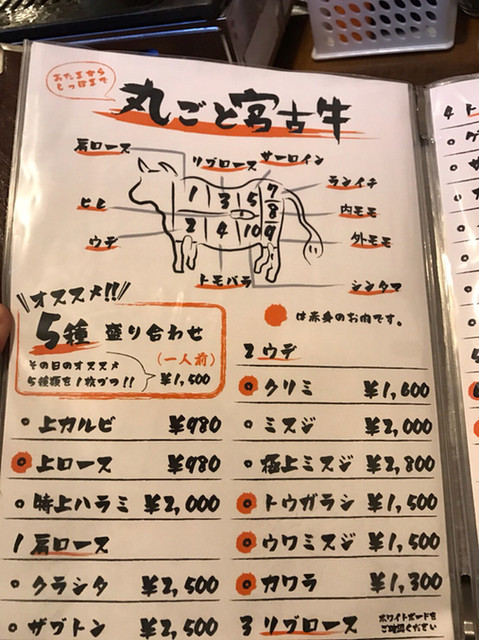 あたまから
しっぽまで
丸ごと宮古牛
肩ロース
リブロース
サーロイン
ランイチ
ヒレ
内モモ
ウデ
外モモ
トモバラ
シンタマ
1 3 5 7
8
2 4 10 9
オススメ!!
5種盛り合わせ
(一人前)
その日のオススメ
5種類を1枚づつ!! ¥1,500
は赤身のお肉です。
上カルビ ¥980
上ロース ¥980
特上ハラミ ¥2,000
1 肩ロース
クラシタ ¥2,500
ザブトン ¥2,500
2 ウデ
クリミ ¥1,600
ミスジ ¥2,000
極上ミスジ ¥2,800
トウガラシ ¥1,500
ウワミスジ ¥1,500
カワラ ¥1,300
3 リブロース
ホワイトボードを
ご確認ください
4